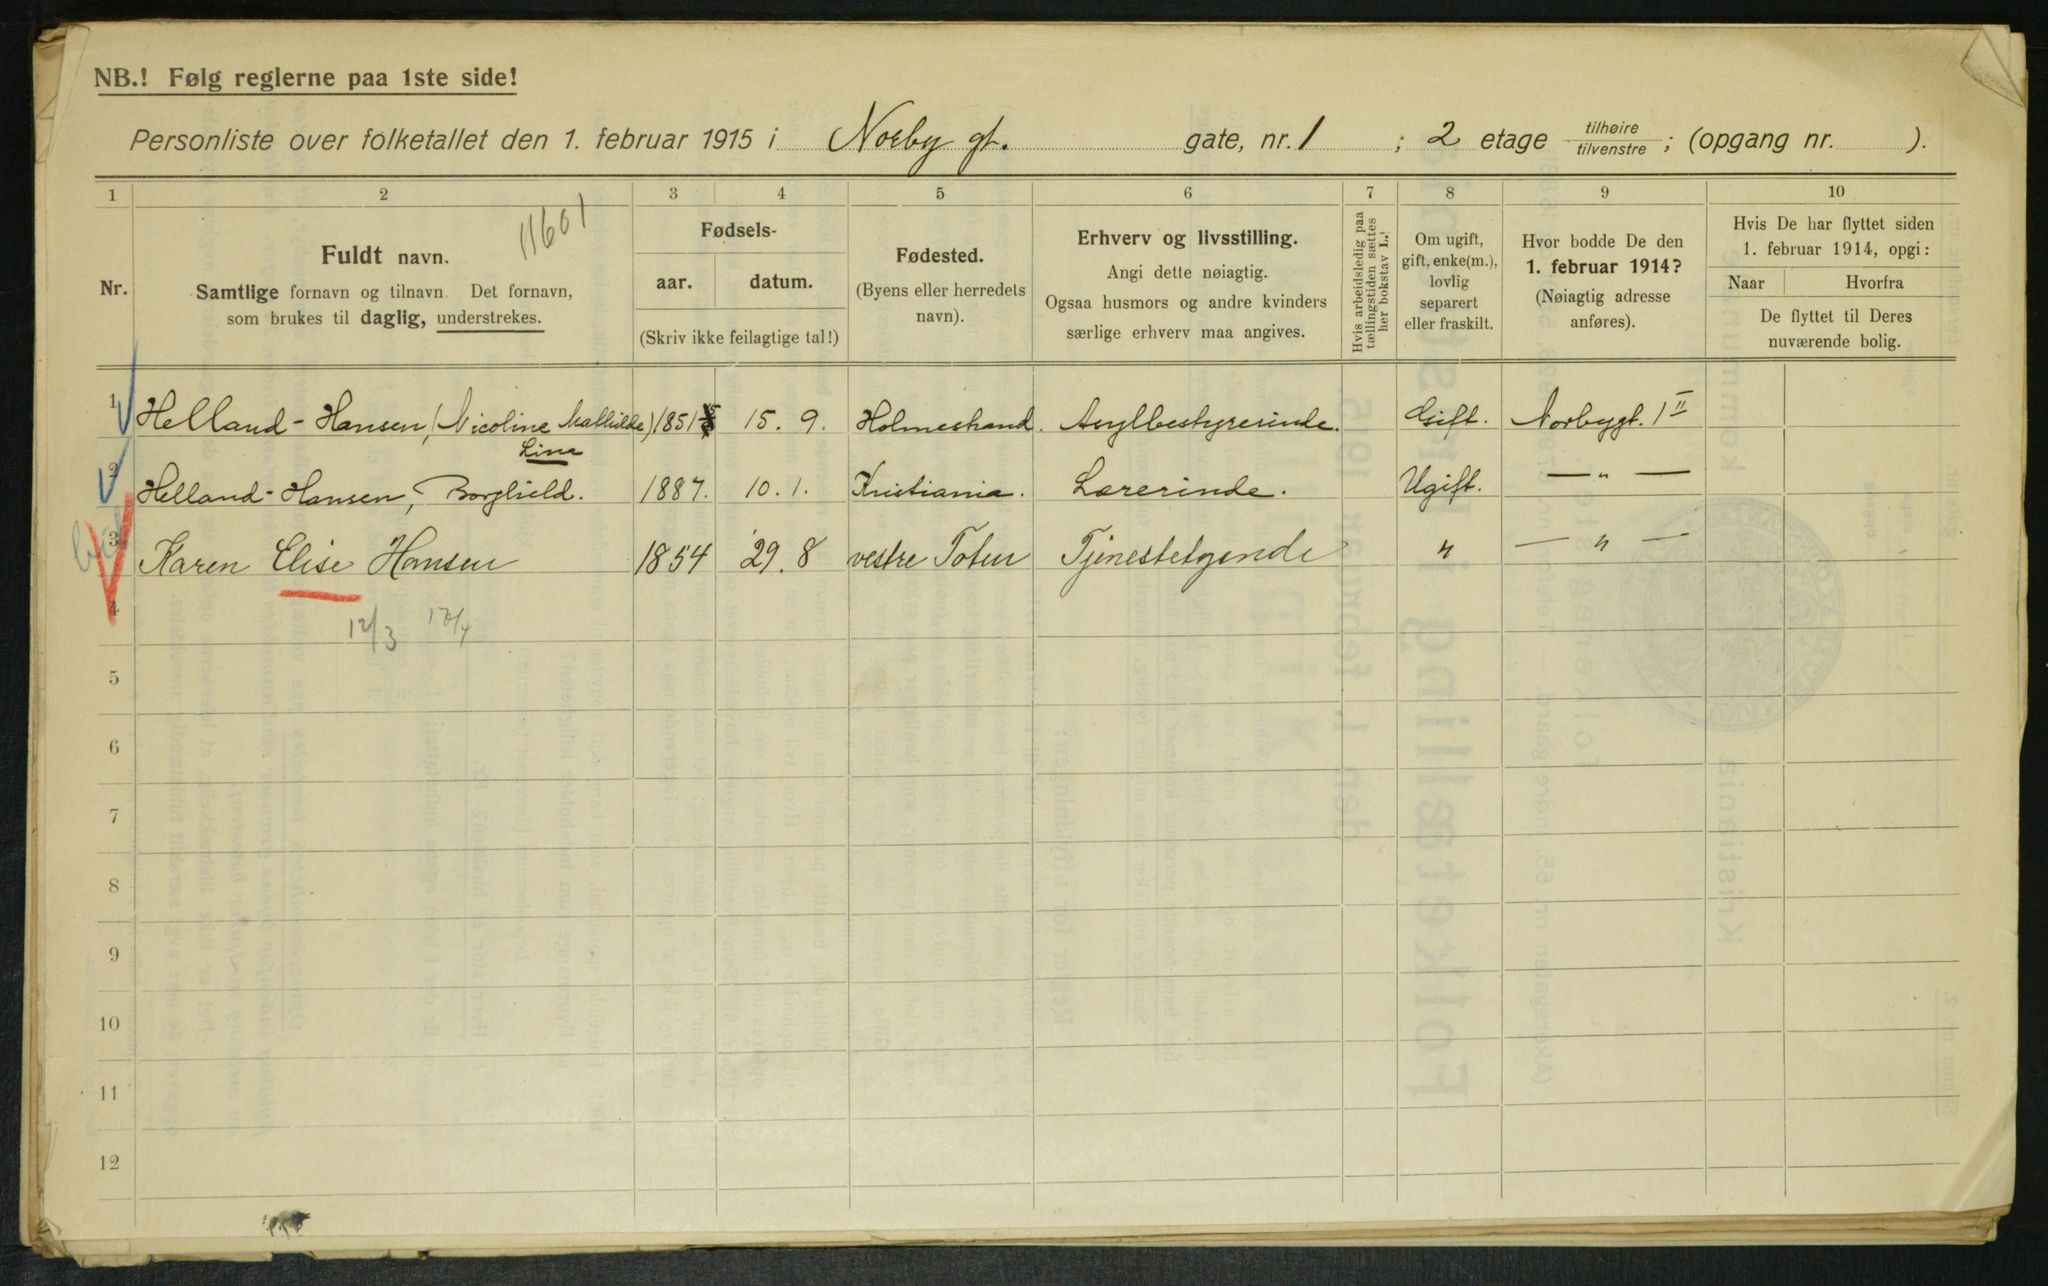 NB.! Følg reglerne paa 1ste side!
Personliste over folketallet den 1. februar 1915 i Norby gt. gate, nr. 1 ; 2 etage tilhøire tilvenstre ; (opgang nr. ).
1 2 3 4 5 6 7 8 9 10
11601
Nr.
Fuldt navn.
Samtlige fornavn og tilnavn. Det fornavn,
som brukes til daglig, understrekes.
Fødsels-
aar. datum.
(Skriv ikke feilagtige tal!)
Fødested.
(Byens eller herredets
navn).
Erhverv og livsstilling.
Angi dette nøiagtig.
Ogsaa husmors og andre kvinders
særlige erhverv maa angives.
Hvis arbeidsledig paa
tællingstiden sættes
her bokstav L.!
Om ugift,
gift, enke(m.),
lovlig
separert
eller fraskilt.
Hvor bodde De den
1. februar 1914?
(Nøiagtig adresse
anføres).
Hvis De har flyttet siden
1. februar 1914, opgi:
Naar Hvorfra
De flyttet til Deres
nuværende bolig.
1 Helland-Hansen, (Nicoline Mathilde) 1851 15. 9. Holmestrand. Asylbestyrerinde. Gift. Norbygt. 1 II
Lina
2 Helland-Hansen, Borghild. 1887. 10. 1. Kristiania. Lærerinde. Ugift. — " —
3 Karen Elise Hansen 1854 29. 8 vestre Toten Tjenestetgende " — " —
4
12/3 17/4
5
6
7
8
9
10
11
12